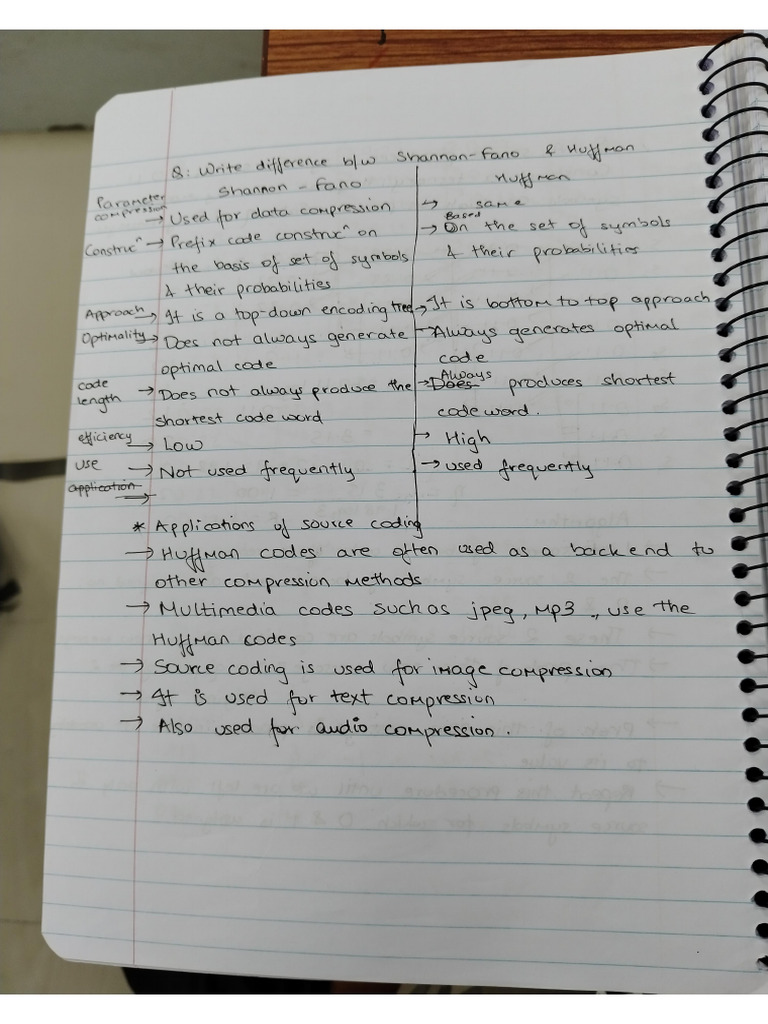 Q: Write difference b/w Shannon-Fano & Huffman
Parameter Shannon - Fano Huffman
compression → Used for data compression → same
Construcⁿ → Prefix code construcⁿ on → Based On the set of symbols
the basis of set of symbols & their probabilities
& their probabilities
Approach → It is a top-down encoding tree → It is bottom to top approach
Optimality → Does not always generate → Always generates optimal
optimal code code
code length → Does not always produce the → Does Always produces shortest
shortest code word code word.
efficiency → Low → High
use → Not used frequently → used frequently
application →
* Applications of source coding
→ Huffman codes are often used as a back end to
other compression methods
→ Multimedia codes such as jpeg, MP3 , use the
Huffman codes
→ Source coding is used for image compression
→ It is used for text compression
→ Also used for audio compression.